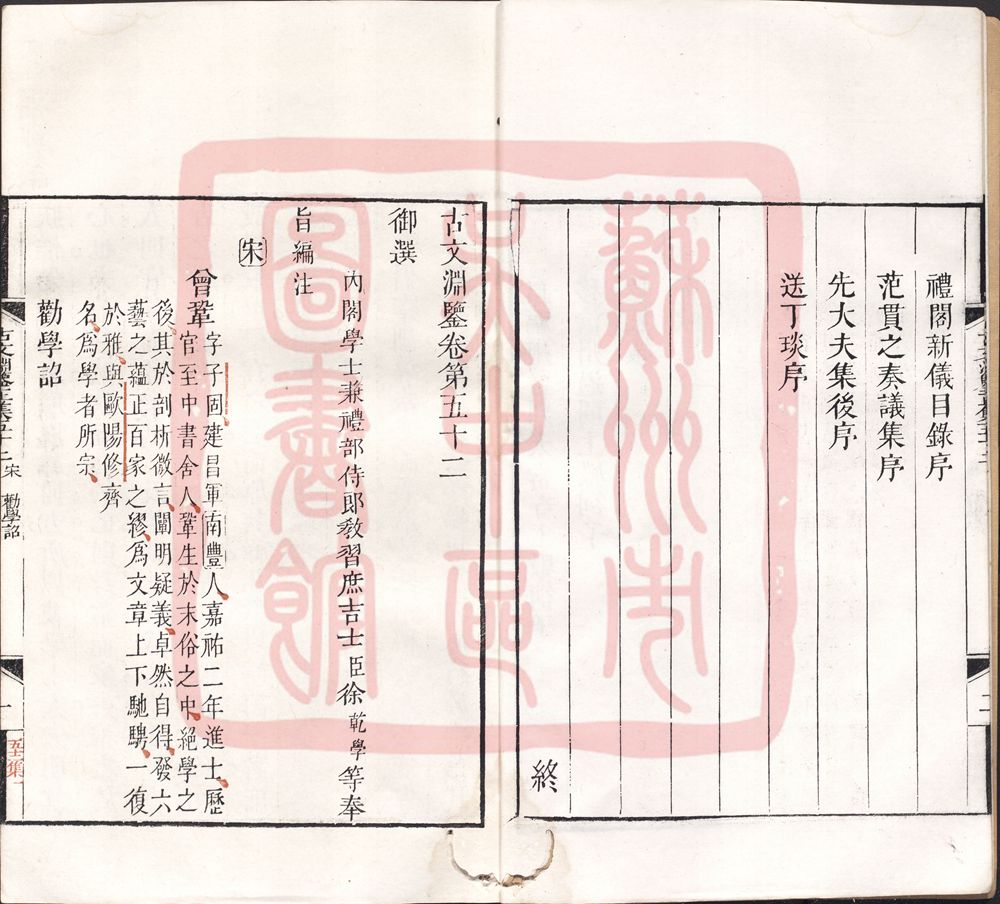 禮閣新儀目錄序
范貫之奏議集序
先大夫集後序
送丁琰序
終
二
古文淵鑒卷第五十二
御選
內閣學士兼禮部侍郎教習庶吉士臣徐乾學等奉
旨編注
宋
曾鞏字子固建昌軍南豐人嘉祐二年進士歷
官至中書舍人鞏生於末俗之中絕學之
後其於剖析微言闡明疑義卓然自得發六
藝之蘊正百家之繆爲文章上下馳騁一復
於雅與歐陽修齊
名爲學者所宗
勸學詔
古文淵鑒 宋 勸學詔
一
蘇州市
吳中區
圖書館